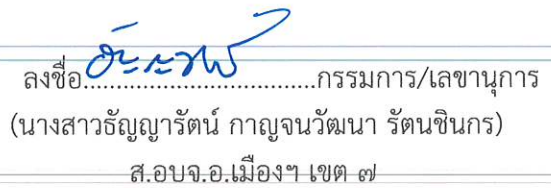 ลงชื่อ....................................กรรมการ/เลขานุการ
(นางสาวธัญญารัตน์ กาญจนวัฒนา รัตนชินกร)
ส.อบจ.อ.เมืองฯ เขต ๗